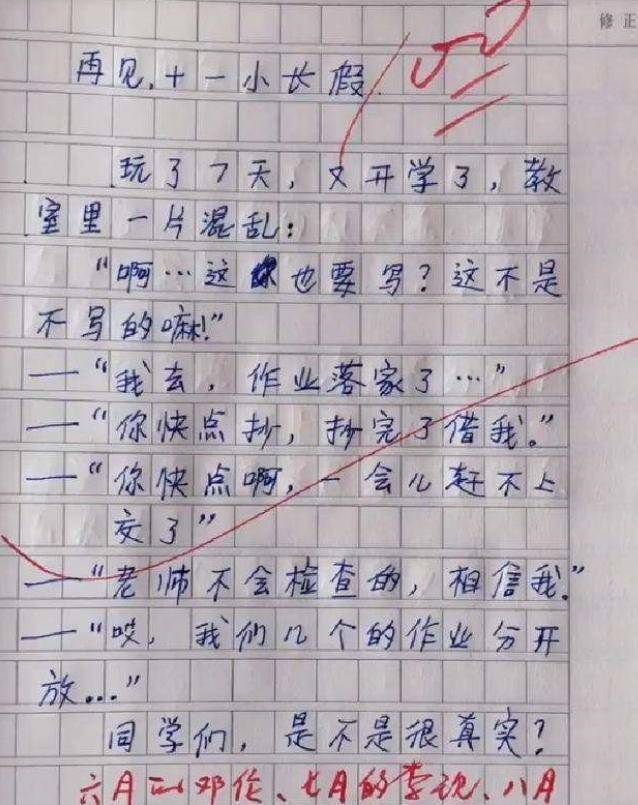 修正
再见,十一小长假
玩了7天,又开学了,教
室里一片混乱:
“啊…这 也要写?这不是
不写的嘛!”
—“我去,作业落家了…”
—“你快点抄,抄完了借我。”
—“你快点啊,一会儿赶不上
交了”
—“老师不会检查的,相信我。”
—“哎,我们几个的作业分开
放...”
同学们,是不是很真实?
六月的邓伦、七月的李现、八月